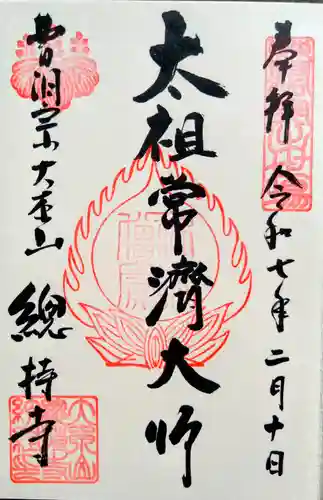 奉拝 令和七年二月十日
太祖常濟大師
曹洞宗大本山
總持寺